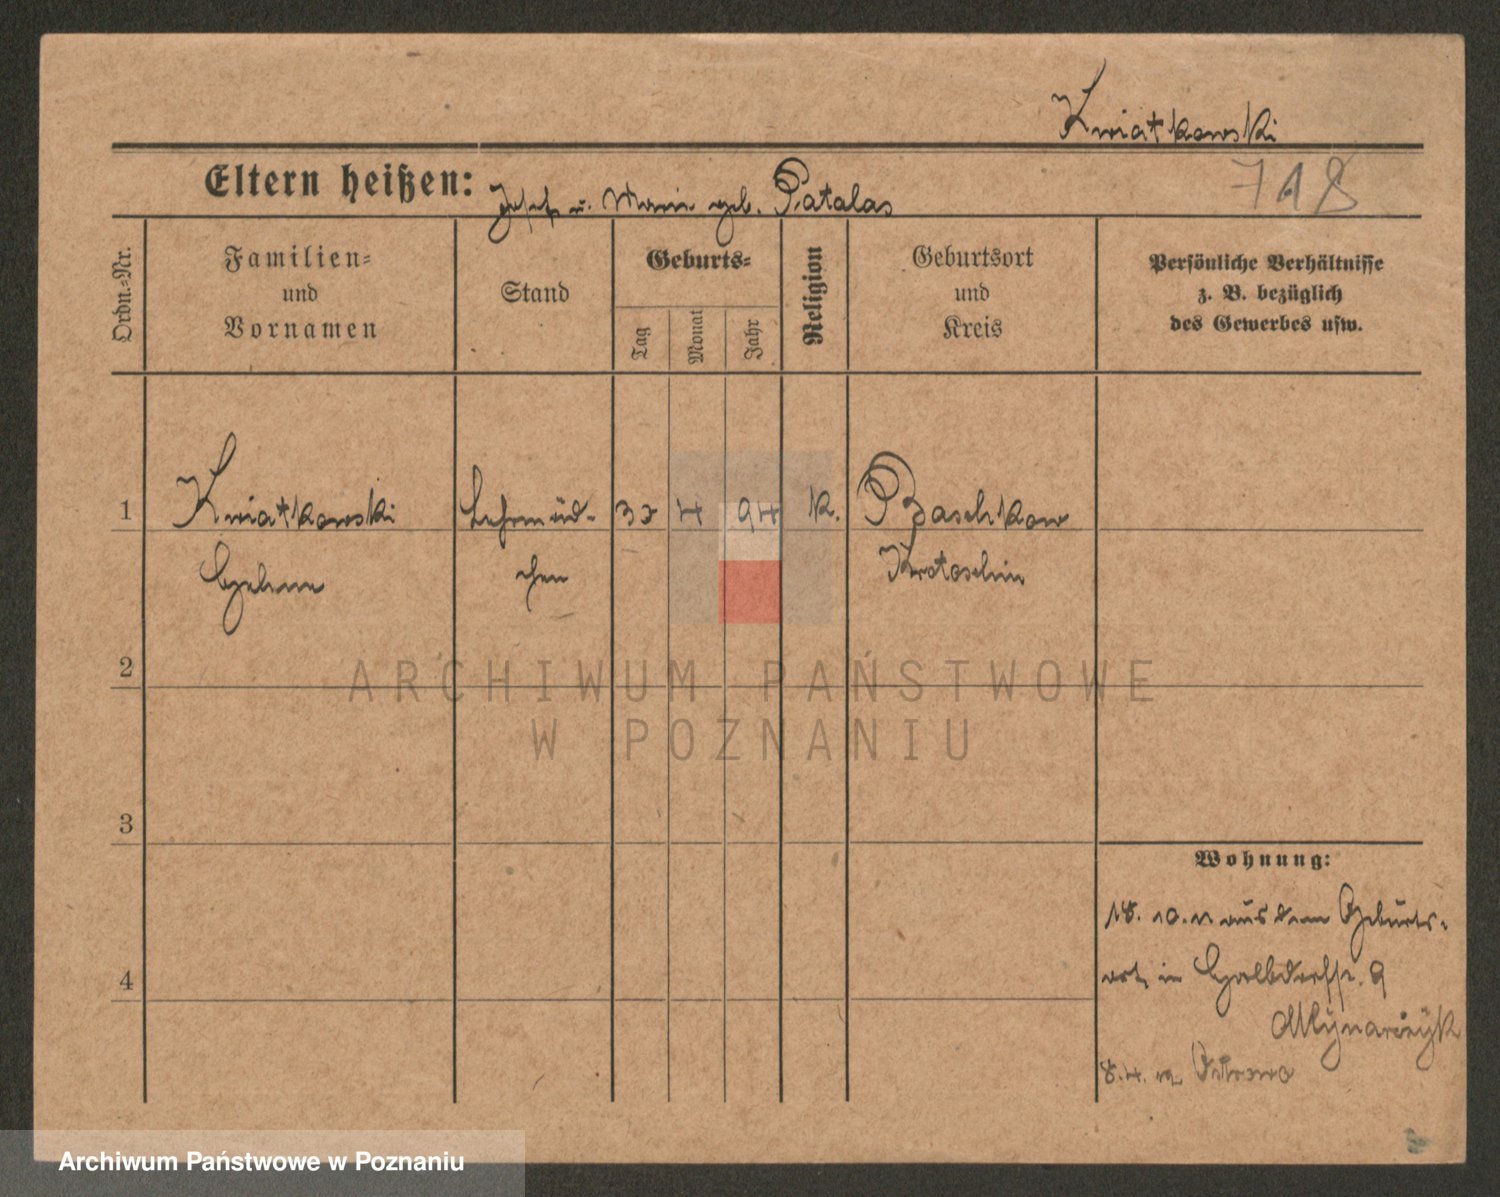 Kwiatkowski
718
Eltern heißen: Josef u. Marie geb. Patalas
Ordn.-Nr.
Familien-
und
Vornamen
Stand
Geburts-
Tag
Monat
Jahr
Religion
Geburtsort
und
Kreis
Persönliche Verhältnisse
z. B. bezüglich
des Gewerbes usw.
1 Kwiatkowski Lehrmäd- 4 94 K. Baschkow
chen Krotoschin
2
3
4
Wohnung:
18. 10. 11 aus dem Geburts-
ort in 9
Mlynarczyk
8. 4. 12 Ostrowo
ARCHIWUM PAŃSTWOWE
W POZNANIU
Archiwum Państwowe w Poznaniu